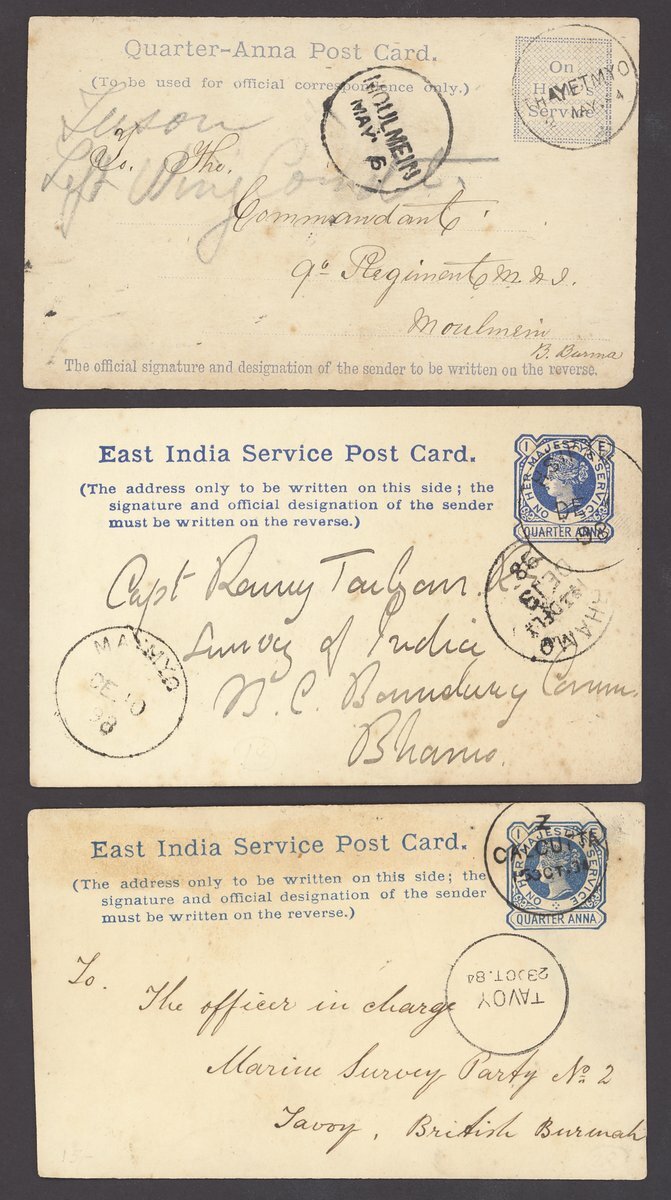 Quarter-Anna Post Card.
(To be used for official correspondence only.)
On
Service
THAYETMYO
MAY
MOULMEIN
MAY 6
To. The.
Left Wing
Commandant
9th Regiment M.N.I.
Moulmein
B. Burma
The official signature and designation of the sender to be written on the reverse.
East India Service Post Card.
(The address only to be written on this side; the
signature and official designation of the sender
must be written on the reverse.)
ON HER MAJESTY'S SERVICE
QUARTER ANNA
DE
98
BHAMO
Capt
Survey of India
B. C. Boundary Comm.
Bhamo.
MAYMYO
DE 10
98
East India Service Post Card.
(The address only to be written on this side; the
signature and official designation of the sender
must be written on the reverse.)
I E
ON HER MAJESTY'S SERVICE
QUARTER ANNA
7
CALCUTTA
TAVOY
23 OCT. 84
To.
The officer in charge
Marine Survey Party No. 2
Tavoy, British Burmah